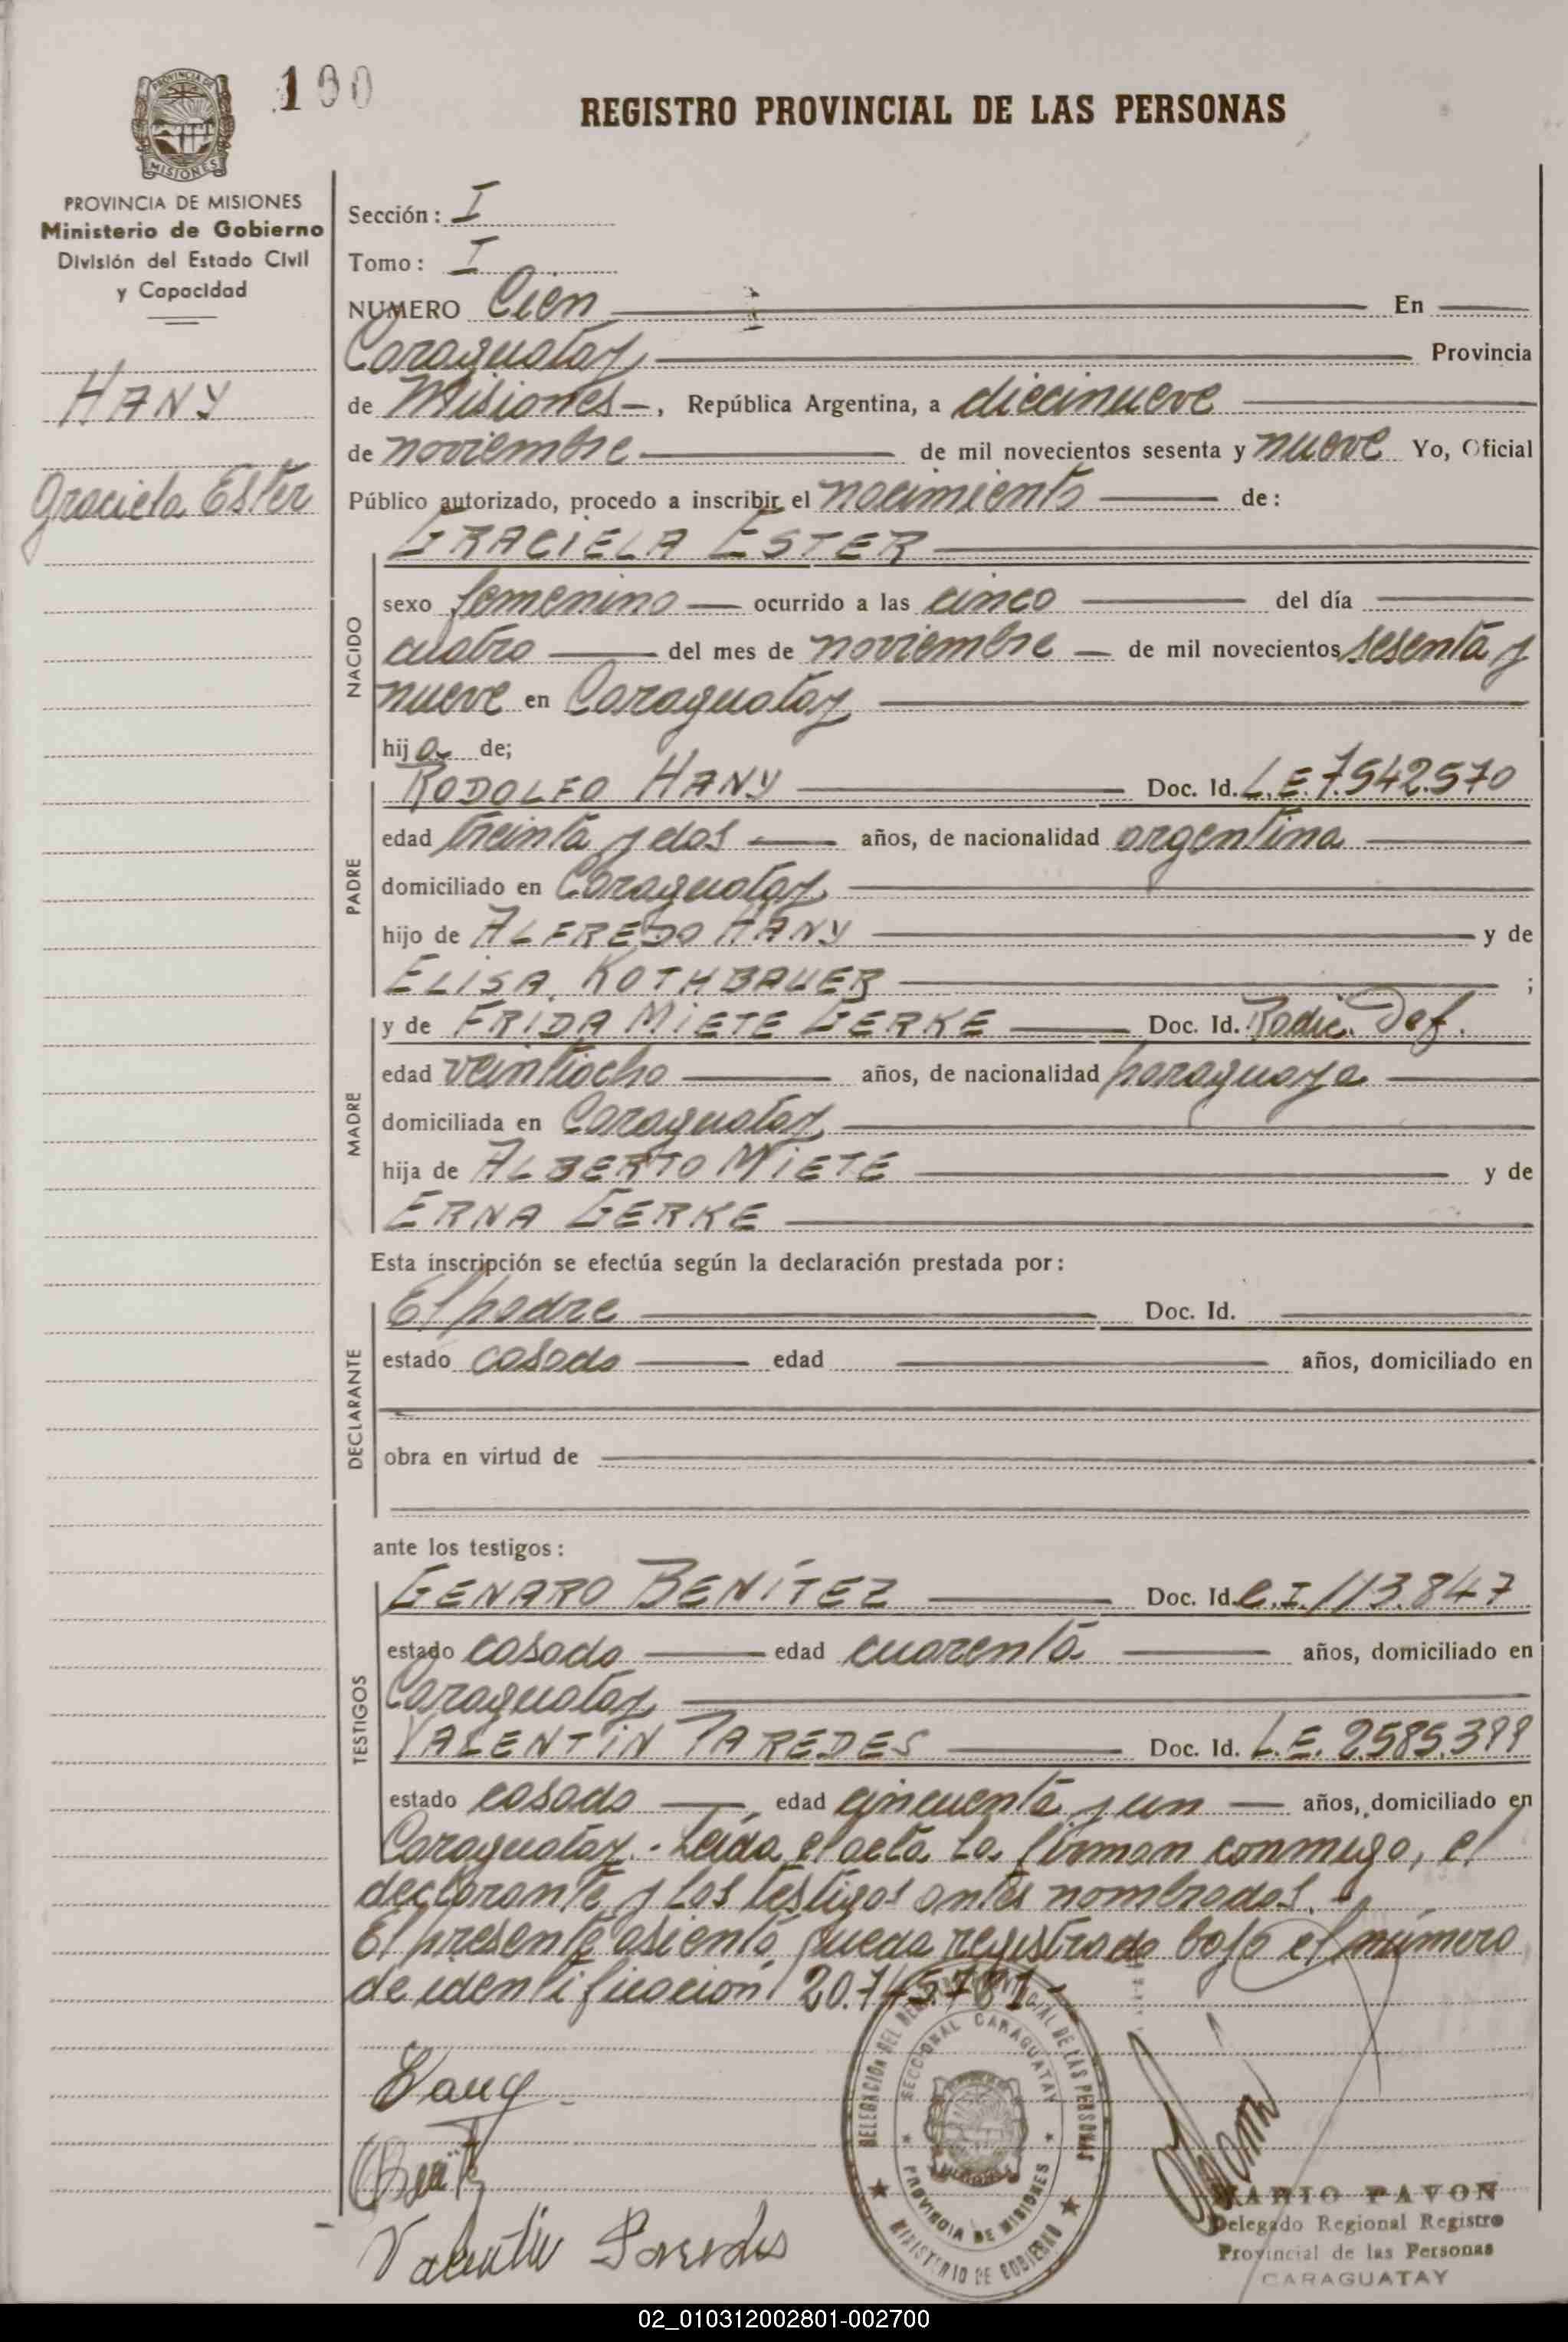 100
REGISTRO PROVINCIAL DE LAS PERSONAS
PROVINCIA DE
MISIONES
PROVINCIA DE MISIONES
Ministerio de Gobierno
División del Estado Civil
y Capacidad
HANY
Graciela Ester
Sección: I
Tomo: I
NUMERO Cien En
Caraguatay Provincia
de Misiones, República Argentina, a diecinueve
de noviembre de mil novecientos sesenta y nueve Yo, Oficial
Público autorizado, procedo a inscribir el nacimiento de:
NACIDO
GRACIELA ESTER
sexo femenino ocurrido a las cinco del día
cuatro del mes de noviembre de mil novecientos sesenta y
nueve en Caraguatay
hija de;
PADRE
RODOLFO HANY Doc. Id. L.E. 7.542.570
edad treinta y dos años, de nacionalidad argentina
domiciliado en Caraguatay
hijo de ALFREDO HANY y de
ELISA KOTHBAUER ;
MADRE
y de FRIDA MIETE GERKE Doc. Id. Radic. Def.
edad veintiocho años, de nacionalidad paraguaya
domiciliada en Caraguatay
hija de ALBERTO MIETE y de
ERNA GERKE
Esta inscripción se efectúa según la declaración prestada por:
DECLARANTE
El padre Doc. Id.
estado casado edad años, domiciliado en
obra en virtud de
ante los testigos:
TESTIGOS
GENARO BENÍTEZ Doc. Id. C.I. 113.847
estado casado edad cuarenta años, domiciliado en
Caraguatay
VALENTIN PAREDES Doc. Id. L.E. 2.585.399
estado casado edad cincuenta y un años, domiciliado en
Caraguatay.- Leída el acta la firman conmigo, el
declarante y los testigos antes nombrados.-
El presente asiento queda registrado bajo el número
de identificación 20.745.781-
Hany
Valentin Paredes
DELEGACIÓN DEL REGISTRO PROVINCIAL DE LAS PERSONAS
SECCIONAL CARAGUATAY
PROVINCIA DE MISIONES
MINISTERIO DE GOBIERNO
MARIO PAVON
Delegado Regional Registro
Provincial de las Personas
CARAGUATAY
02_010312002801-002700